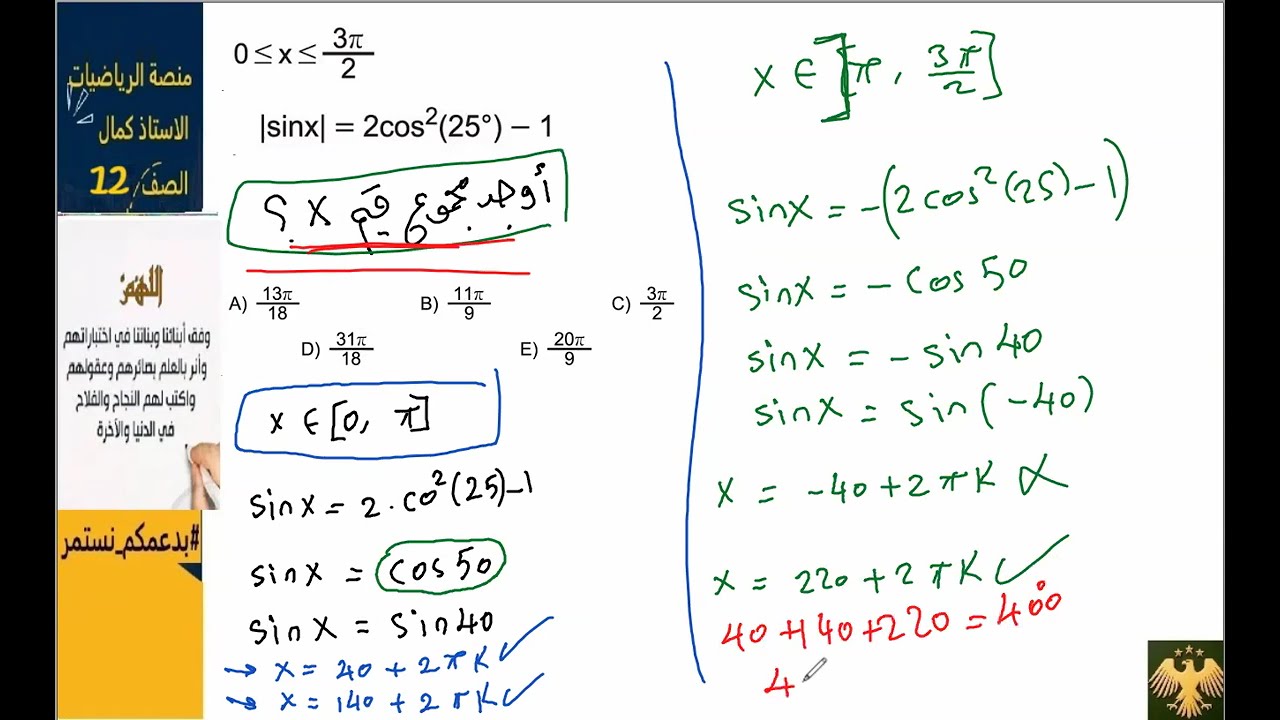 منصة الرياضيات
الاستاذ كمال
الصف 12
اللهم
وفق أبنائنا وبناتنا في اختباراتهم
وأنر بالعلم بصائرهم وعقولهم
واكتب لهم النجاح والفلاح
في الدنيا والآخرة
#بدعمكم_نستمر
0 ≤ x ≤ 3π/2
|sinx| = 2cos²(25°) − 1
أوجد مجموع قيم x ؟
A) 13π/18 B) 11π/9 C) 3π/2
D) 31π/18 E) 20π/9
x ∈ [0, π]
sinx = 2·co²(25)-1
sinx = cos50
sinx = sin40
→ x = 40 + 2πK ✓
→ x = 140 + 2πK ✓
x ∈ ]π, 3π/2]
sinx = -(2cos²(25)-1)
sinx = - cos 50
sinx = - sin40
sinx = sin(-40)
x = -40 + 2πK
x = 220 + 2πK ✓
40 + 140 + 220 = 400°
4